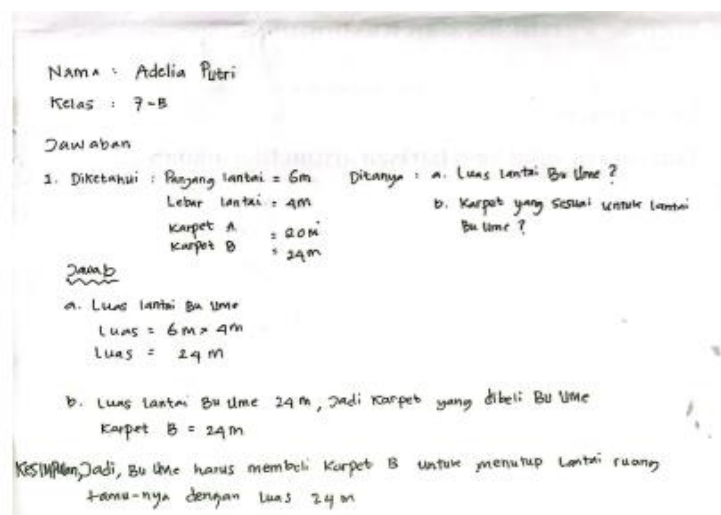 Nama : Adelia Putri
Kelas : 7-B
Jawaban
1. Diketahui : Panjang lantai = 6m
Lebar lantai = 4m
Karpet A = 20m
Karpet B = 24m
Ditanya : a. Luas lantai Bu Ume ?
b. Karpet yang sesuai untuk lantai
Bu Ume ?
Jawab
a. Luas lantai Bu Ume
Luas = 6m × 4m
Luas = 24 m
b. Luas lantai Bu Ume 24 m, Jadi Karpet yang dibeli Bu Ume
Karpet B = 24m
Kesimpulan, Jadi, Bu Ume harus membeli Karpet B untuk menutup lantai ruang
tamu-nya dengan luas 24 m